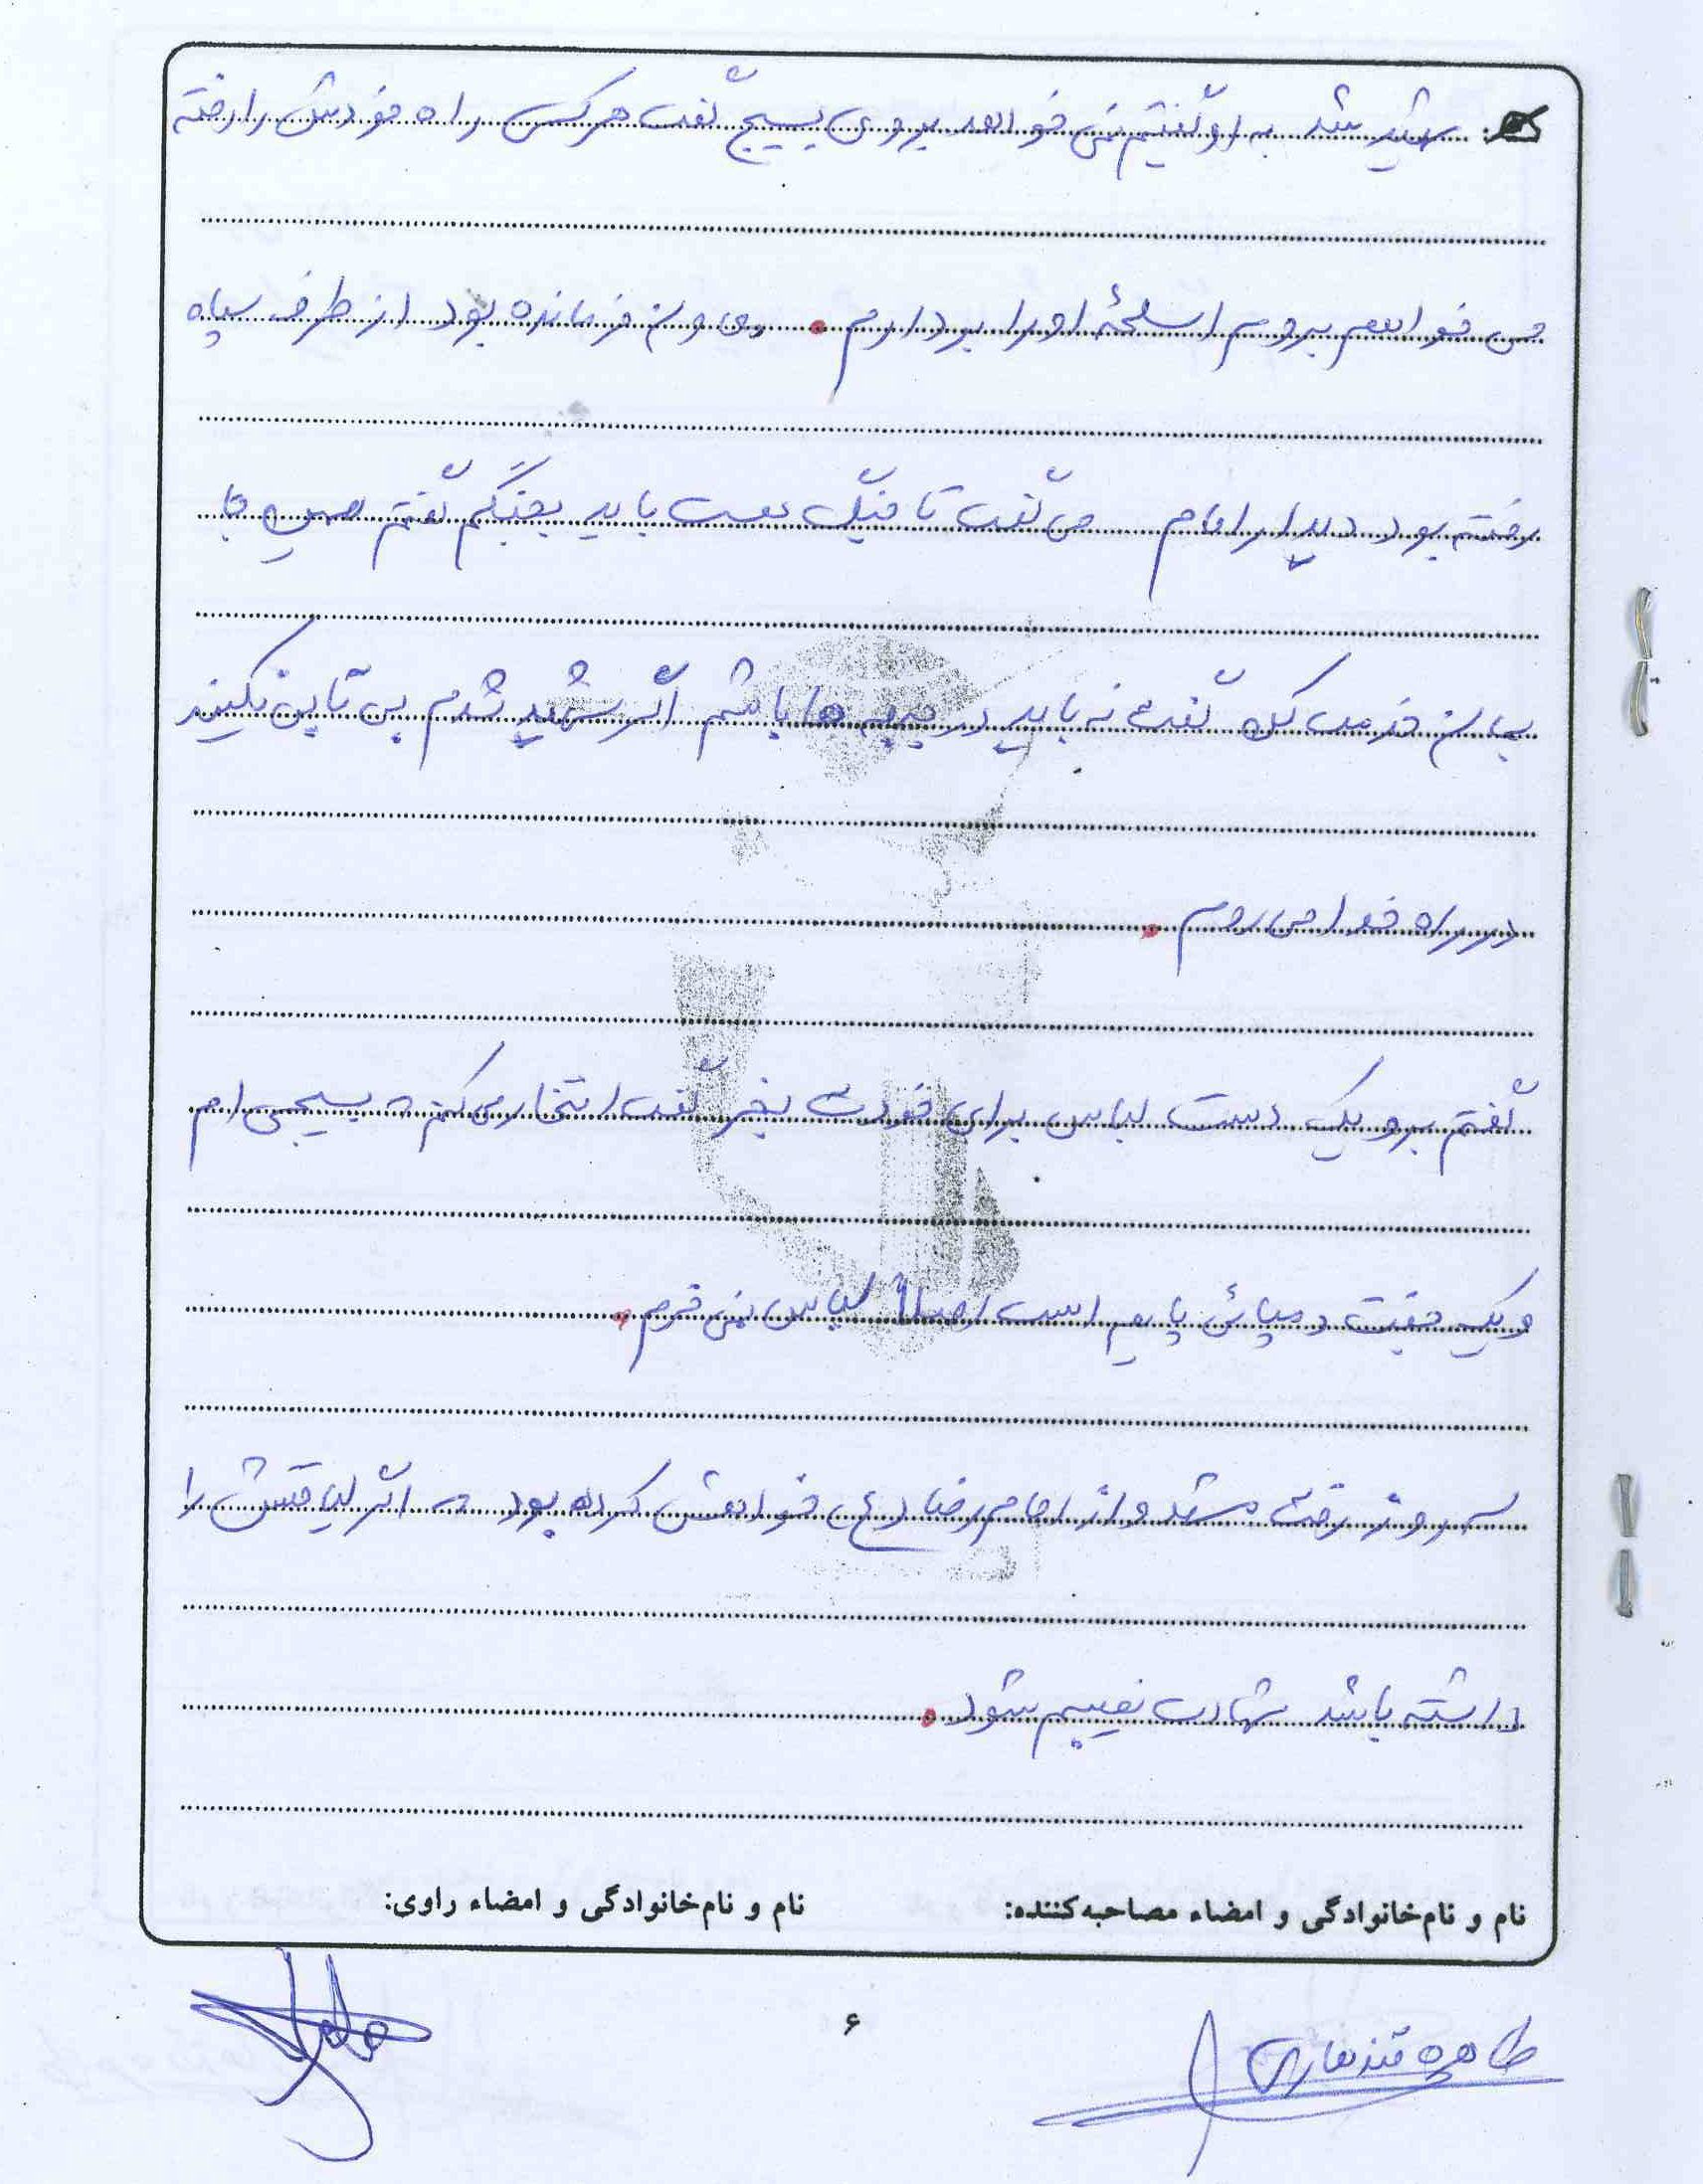 شهید شد به او گفتیم نمی خواهد بروی بسیج گفت هر کس راه خودش را رفته
می خواهم بروم اسلحهٔ او را بردارم. چون فرمانده بود از طرف سپاه
رفته بود دیدار امام می گفت تا جنگ هست باید بجنگم گفتم همین جا
به آن خدمت کن گفت نه باید در جبهه ها باشم اگر شهید شدم بی تابی نکنید
در راه خدا می روم.
گفتم برو یک دست لباس برای خودت بخر گفت افتخار می کنم که بسیجی ام
و یک جفت دمپائی پایم است اصلاً لباس نمی خرم.
سه روز رفت مشهد و از امام رضا (ع) خواهش کرده بود که اگر لیاقتش را
داشته باشد شهادت نصیبم شود.
نام و نام‌خانوادگی و امضاء مصاحبه‌کننده: نام و نام‌خانوادگی و امضاء راوی:
طاهره قندهاری
۶